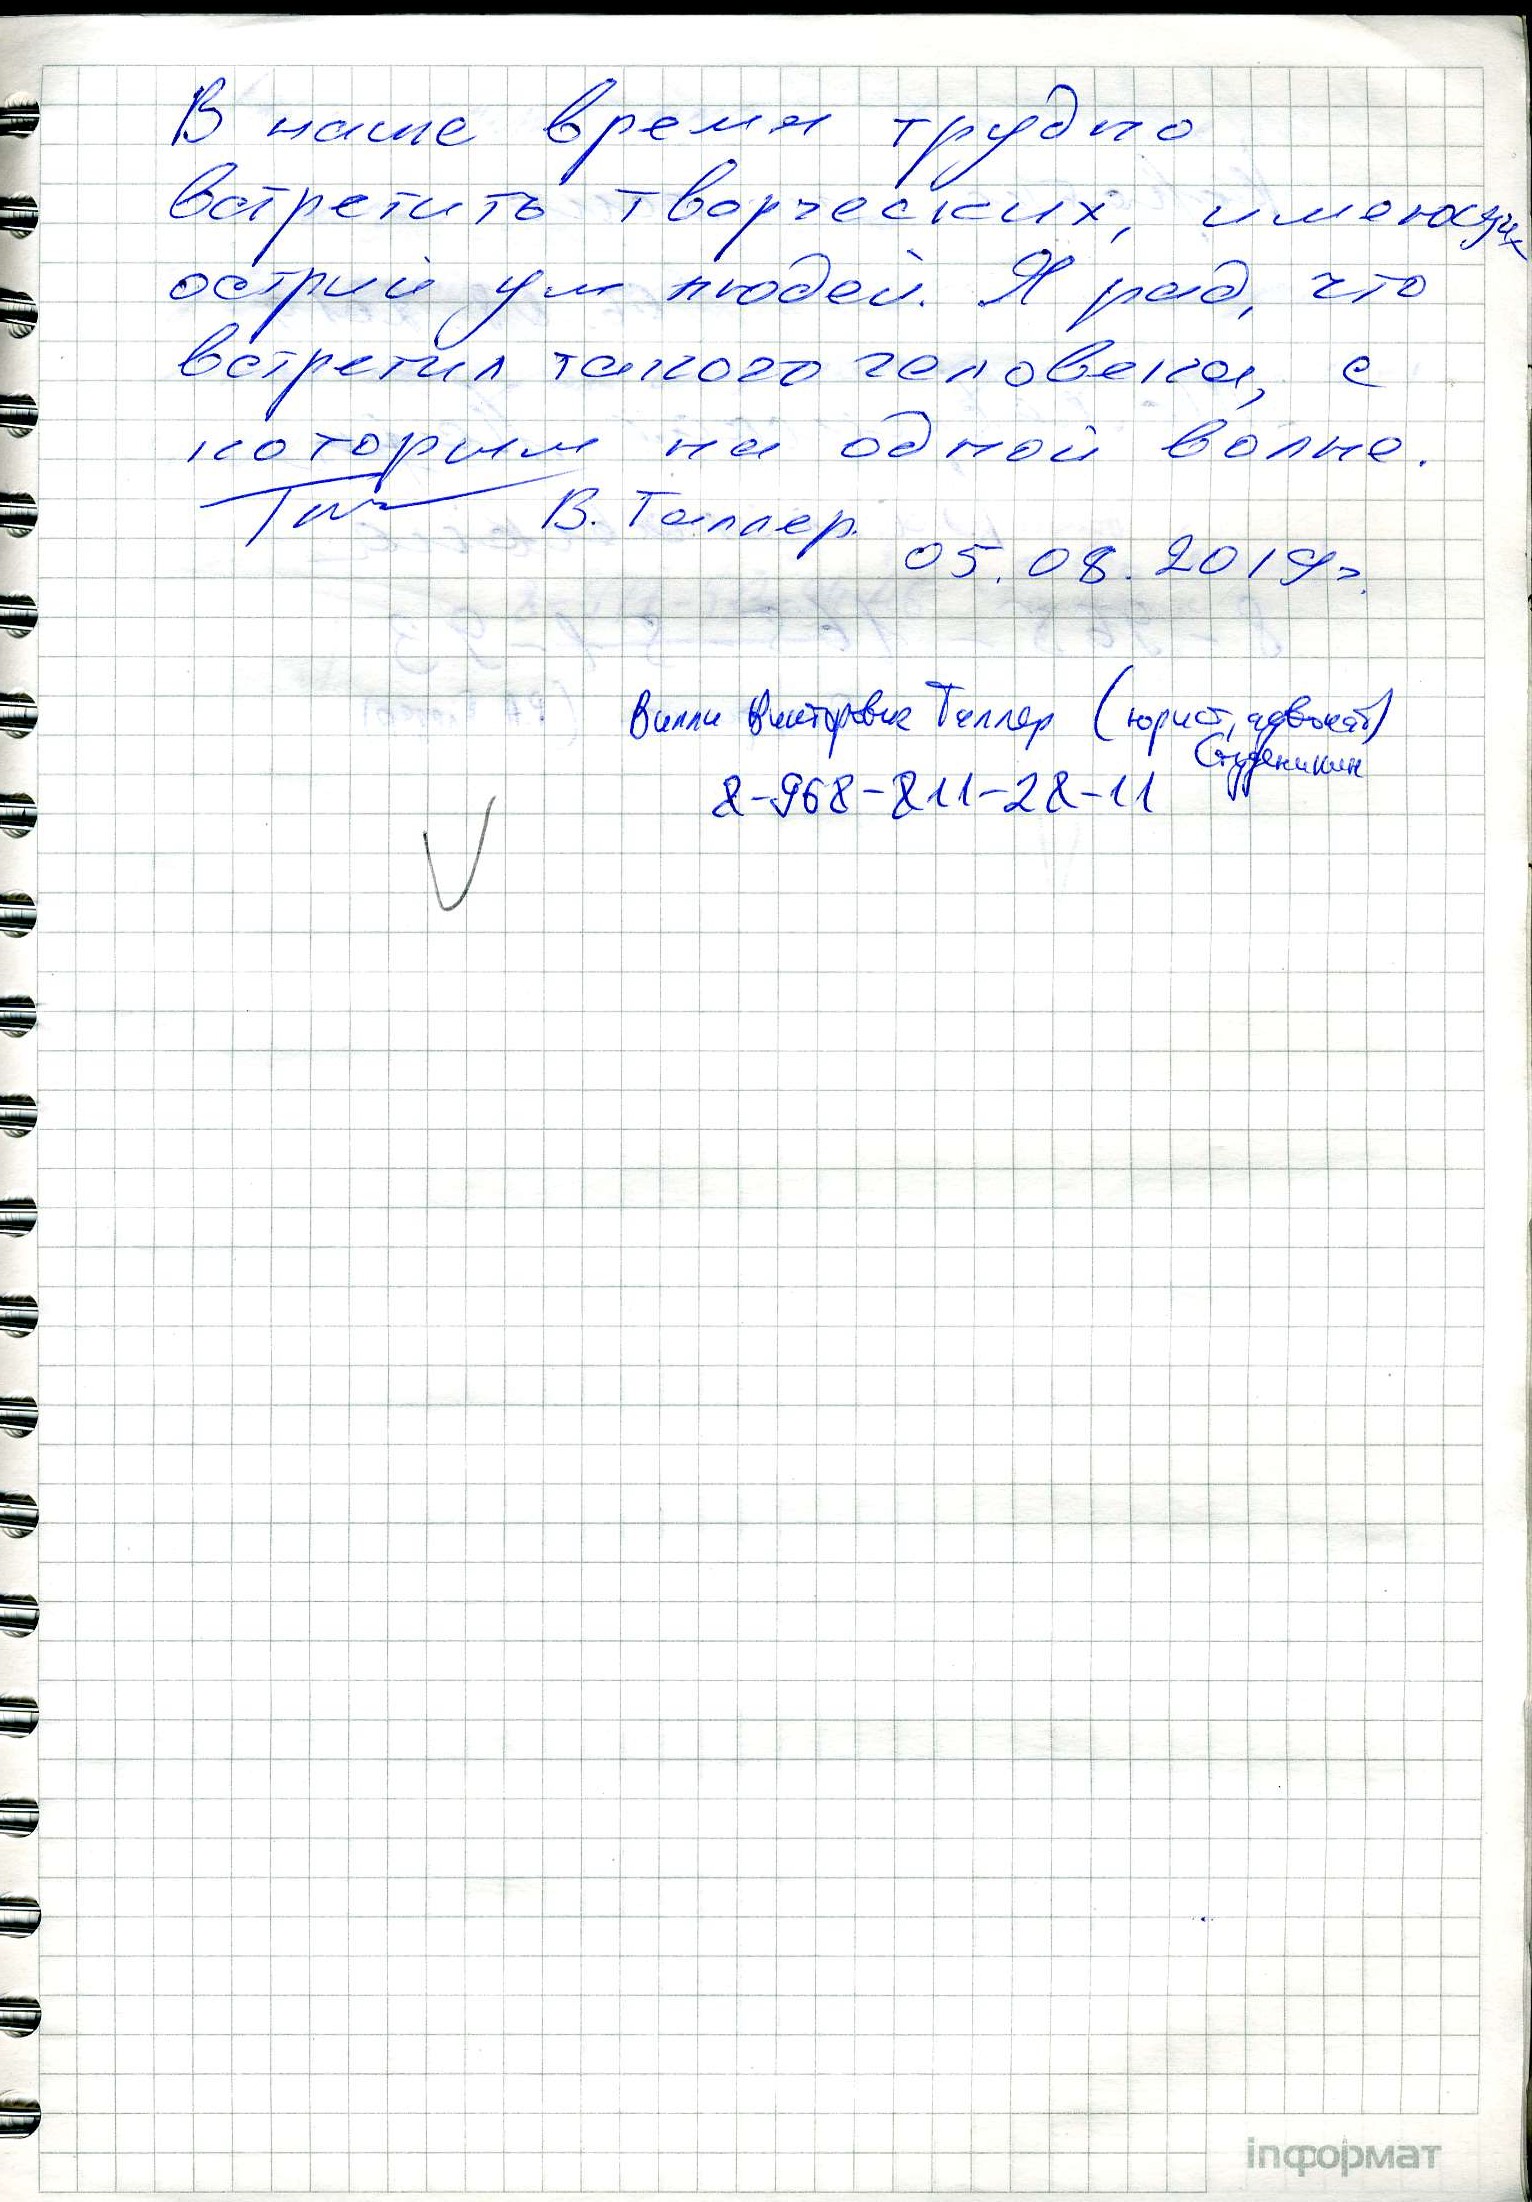 В наше время трудно
встретить творческих, имеющих
острий ум людей. Я рад, что
встретил такого человека, с
которым на одной волне.
В. Таллер.
05.08.2019г.
Вилли Викторович Таллер (юрист, адвокат)
Студеникин
8-968-811-28-11
inформат